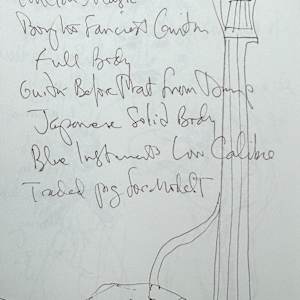 Bought Fanciest Guitar
Full Body
Guitar Before that from Dump
Japanese Solid Body
Blue Instruments Low Calibre
Traded for Model T